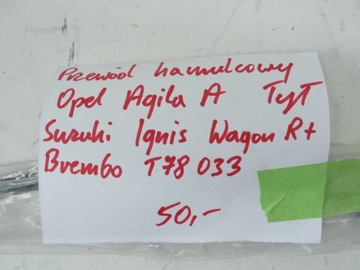 Przewód hamulcowy
Opel Agila A Tył
Suzuki Ignis Wagon R+
Brembo T78 033
50,-